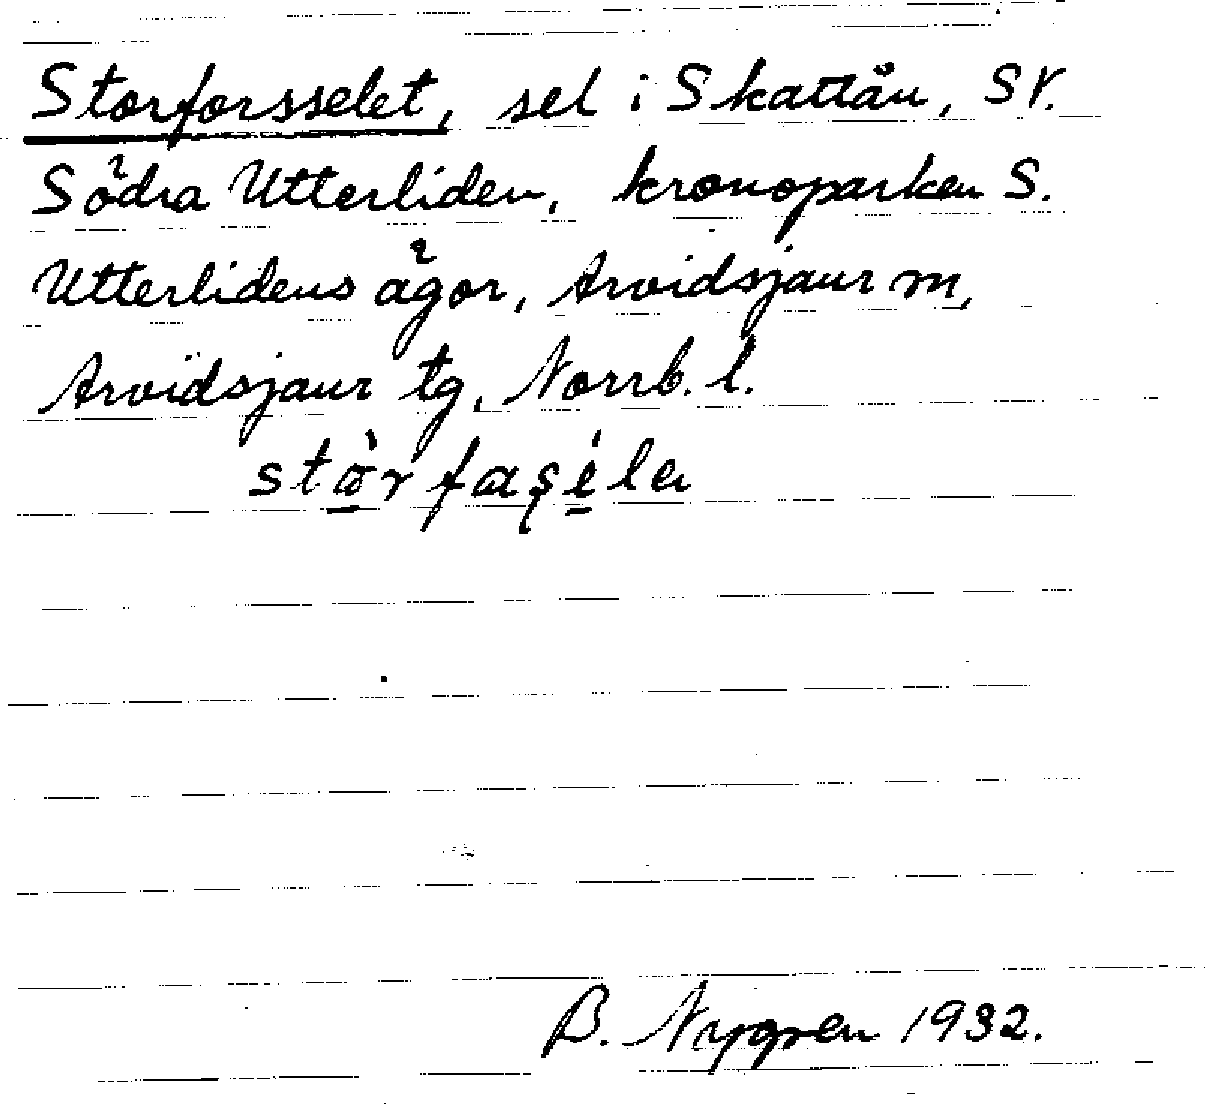 Storforsselet, sel i Skattån, SV.
Södra Utterliden, kronoparken S.
Utterlidens ägor, Arvidsjaur m,
Arvidsjaur tg, Norrb. l.
B. Nygren 1932.